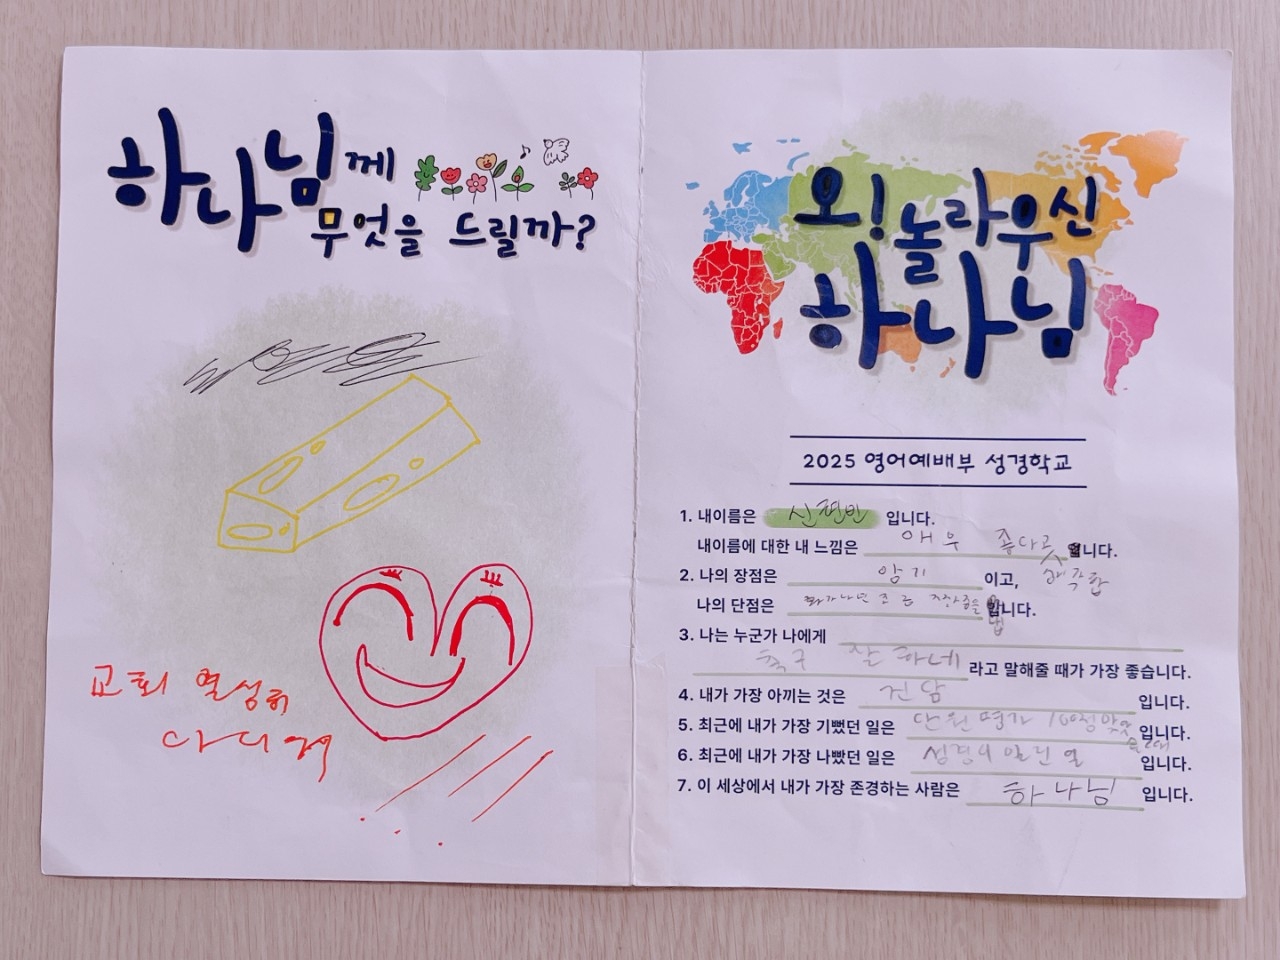 하나님께
무엇을 드릴까?
교회 열성히
다니며
오! 놀라우신
하나님
2025 영어예배부 성경학교
1. 내이름은 신현빈 입니다.
내이름에 대한 내 느낌은 매우 좋다고 생각합니다.
2. 나의 장점은 암기 이고,
나의 단점은 화가나면 조금 입니다.
3. 나는 누군가 나에게
축구 잘하네 라고 말해줄 때가 가장 좋습니다.
4. 내가 가장 아끼는 것은 건담 입니다.
5. 최근에 내가 가장 기뻤던 일은 단원평가 100점 맞았을때 입니다.
6. 최근에 내가 가장 나빴던 일은 입니다.
7. 이 세상에서 내가 가장 존경하는 사람은 하나님 입니다.